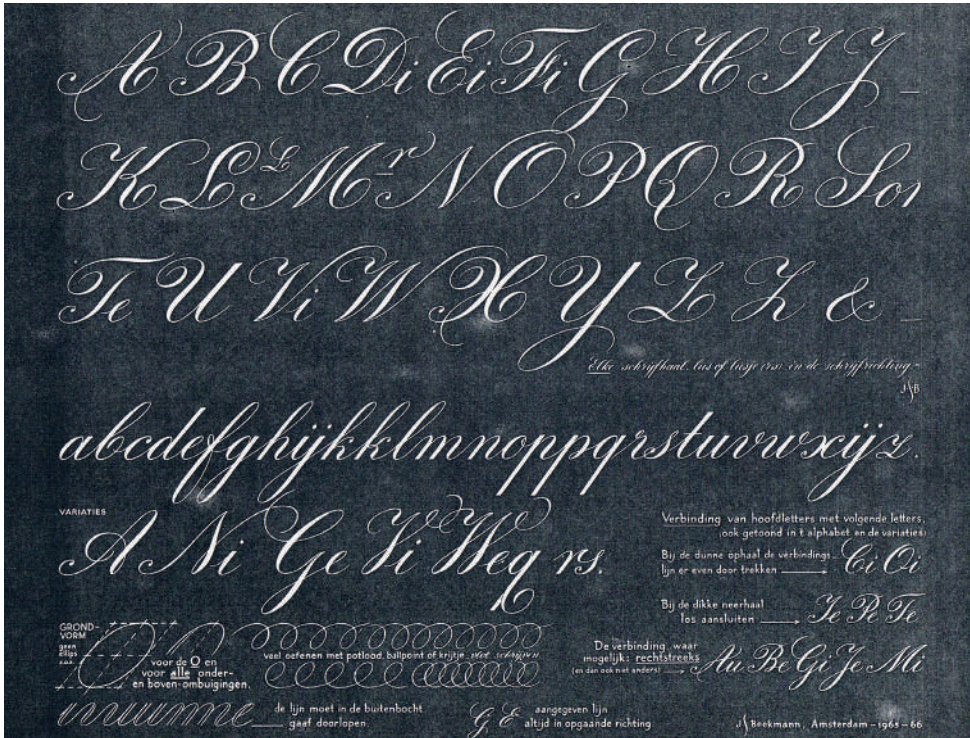 A B C Di Ei Fi G H I J
K L L M r N O P Q R Sor
Te U Vi W X Y Z Z &
Elke schrijfhaal, lus of lusje in de schrijfrichting.
J B
abcdefghijkklmnoppqrstuvwxijz.
VARIATIES
A Ni Ge Vi Weg rs.
Verbinding van hoofdletters met volgende letters,
(ook getoond in t alphabet en de variaties)
Bij de dunne ophaal de verbindings-
lijn er even door trekken
Ci Oi
Bij de dikke neerhaal
los aansluiten
Ie Pe Te
De verbinding waar
mogelijk: rechtstreeks
(en dan ook niet anders)
Au Be Gi Je Mi
GROND-
VORM
geen
elips
voor de O en
voor alle onder-
en boven-ombuigingen.
veel oefenen met potlood, ballpoint of krijtje, vlot schrijven
de lijn moet in de buitenbocht
gaaf doorlopen.
G E
aangegeven lijn
altijd in opgaande richting
J Beekmann, Amsterdam – 1965 – 66